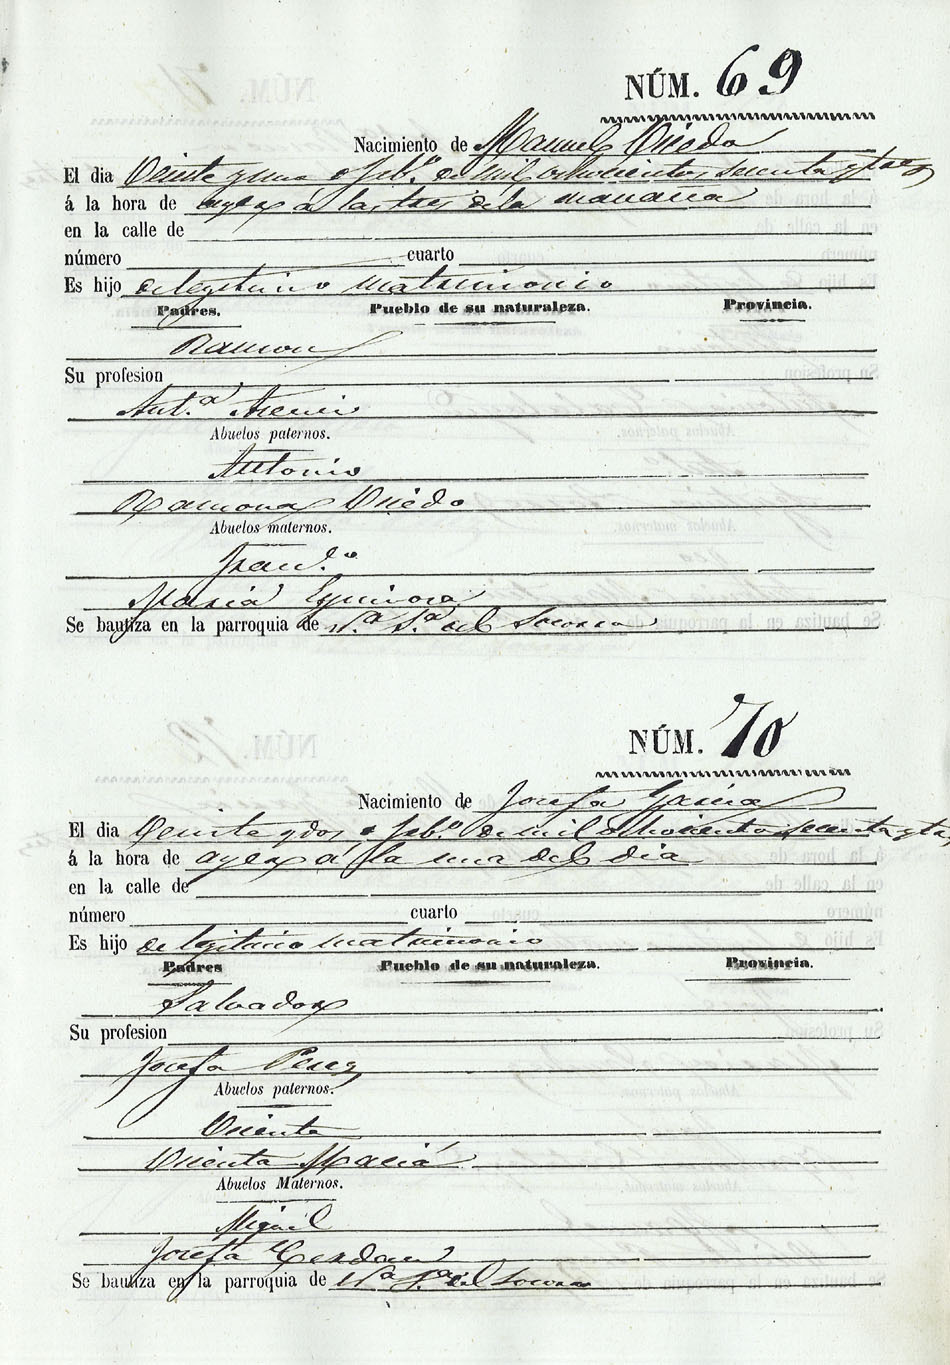 NÚM. 69
Nacimiento de Manuel Oviedo
El dia Veinte y uno d Feb.º de mil ochocientos sesenta y tres
á la hora de ayer á las tres de la mañana
en la calle de
número cuarto
Es hijo de legitimo matrimonio
Padres. Pueblo de su naturaleza. Provincia.
Ramon
Su profesion
Ant.ª Asensi
Abuelos paternos.
Antonio
Ramona Oviedo
Abuelos maternos.
Fran.co
Maria Espinosa
Se bautiza en la parroquia de N.ª S.ª del Socorro
NÚM. 70
Nacimiento de Josefa Garcia
El dia Veinte y dos d Feb.º de mil ochocientos sesenta y tres
á la hora de ayer á la una del dia
en la calle de
número cuarto
Es hijo de legitimo matrimonio
Padres Pueblo de su naturaleza. Provincia.
Salvador
Su profesion
Josefa Perez
Abuelos paternos.
Vicente
Vicenta Maciá
Abuelos Maternos.
Miguel
Josefa Cerdan
Se bautiza en la parroquia de N.ª S.ª del Socorro